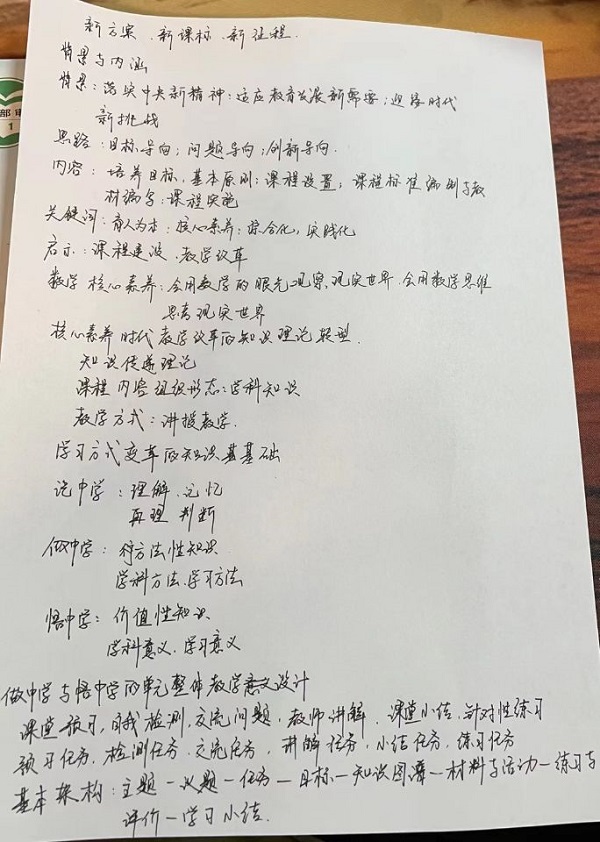 新方案、新课标、新征程.
背景与内涵
背景：落实中央新精神；适应教育发展新需要；迎接时代
新挑战
思路：目标导向；问题导向；创新导向.
内容：培养目标、基本原则；课程设置；课程标准编制与教
材编写；课程实施
关键词：育人为本；核心素养；综合化，实践化
启示：课程建设、教学改革
数学核心素养：会用数学的眼光观察现实世界、会用数学思维
思考现实世界
核心素养时代教学改革的知识理论转型.
知识传递理论
课程内容组织形态：学科知识
教学方式：讲授教学.
学习方式变革的知识基础
记中学：理解、记忆
再现 判断
做中学：方法性知识
学科方法、学习方法
悟中学：价值性知识.
学科意义、学习意义
做中学与悟中学的单元整体教学设计
课堂预习，自我检测，交流问题，教师讲解、课堂小结，针对性练习
预习任务，检测任务，交流任务，讲解任务，小结任务，练习任务
基本架构：主题一议题一任务一目标一知识图谱一材料与活动一练习与
评价一学习小结.
部审
1